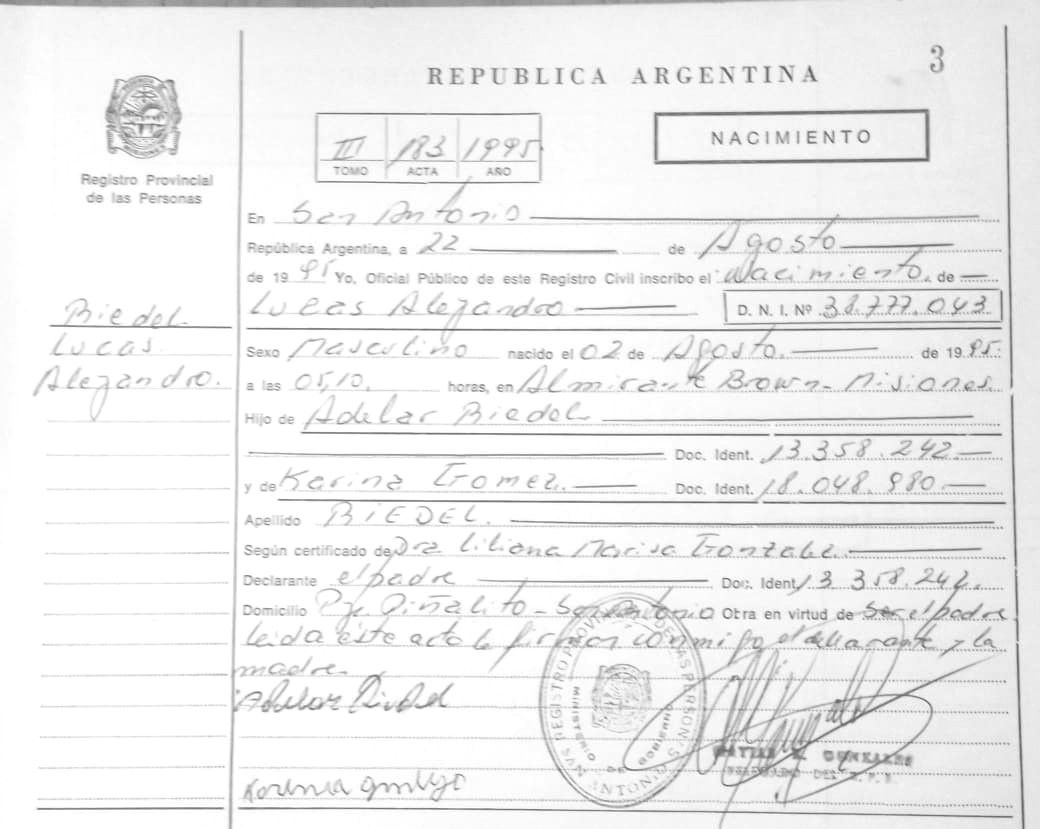 3
REPUBLICA ARGENTINA
NACIMIENTO
III 183 1995
TOMO ACTA AÑO
Registro Provincial
de las Personas
En San Antonio
República Argentina, a 22 de Agosto
de 1995 Yo, Oficial Público de este Registro Civil inscribo el: Nacimiento, de
Lucas Alejandro D. N. I. Nº 38.777.043
Riedel
Lucas
Alejandro.
Sexo Masculino nacido el 02 de Agosto. de 1995.
a las 05,10. horas, en Almirante Brown - Misiones
Hijo de Adelar Riedel
Doc. Ident. 13.358.242.
y de Karina Gomez. Doc. Ident. 18.048.980
Apellido RIEDEL.
Según certificado de Dra Liliana Marisa Gonzalez.
Declarante el padre Doc. Ident. 13 358.242.
Domicilio Pje. Piñalito - San Antonio Otra en virtud de ser el padre
leida este acta la firman conmigo el declarante y la
madre.
Adelar Riedel
REGISTRO PROVINCIAL DE LAS PERSONAS
MINISTERIO DE GOBIERNO
SAN ANTONIO